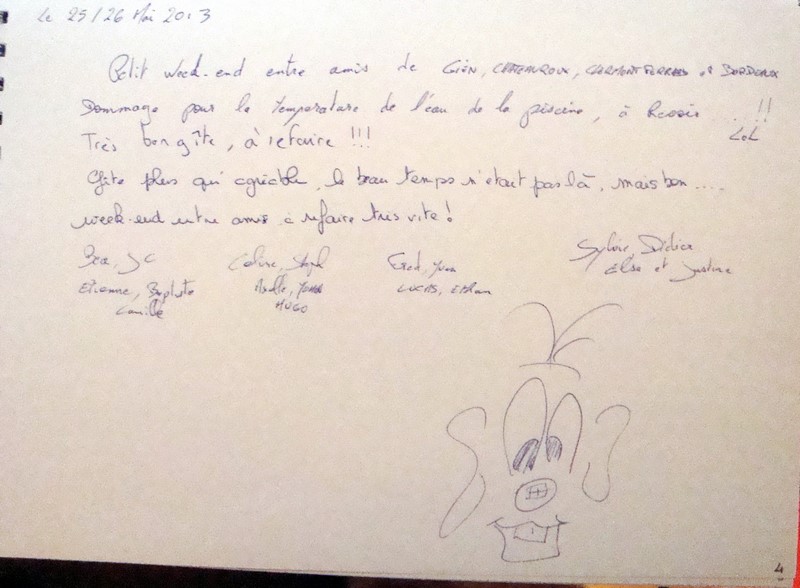 Le 25/26 Mai 2013
Petit week-end entre amis de GIEN, CHATEAUROUX, CLERMONT FERRAND et BORDEAUX
Dommage pour la température de l'eau de la piscine, à Revoir ...!!
LOL
Très bon gîte, à refaire !!!
Gîte plus qu'agréable, le beau temps n'était pas là, mais bon ....
week-end entre amis à refaire très vite !
Bea, JC
Etienne, Baptiste
Camille
Celine, Steph
HUGO
Fred,
LUCAS, ETHAN
Sylvie, Didier
Elsa et Justine
4